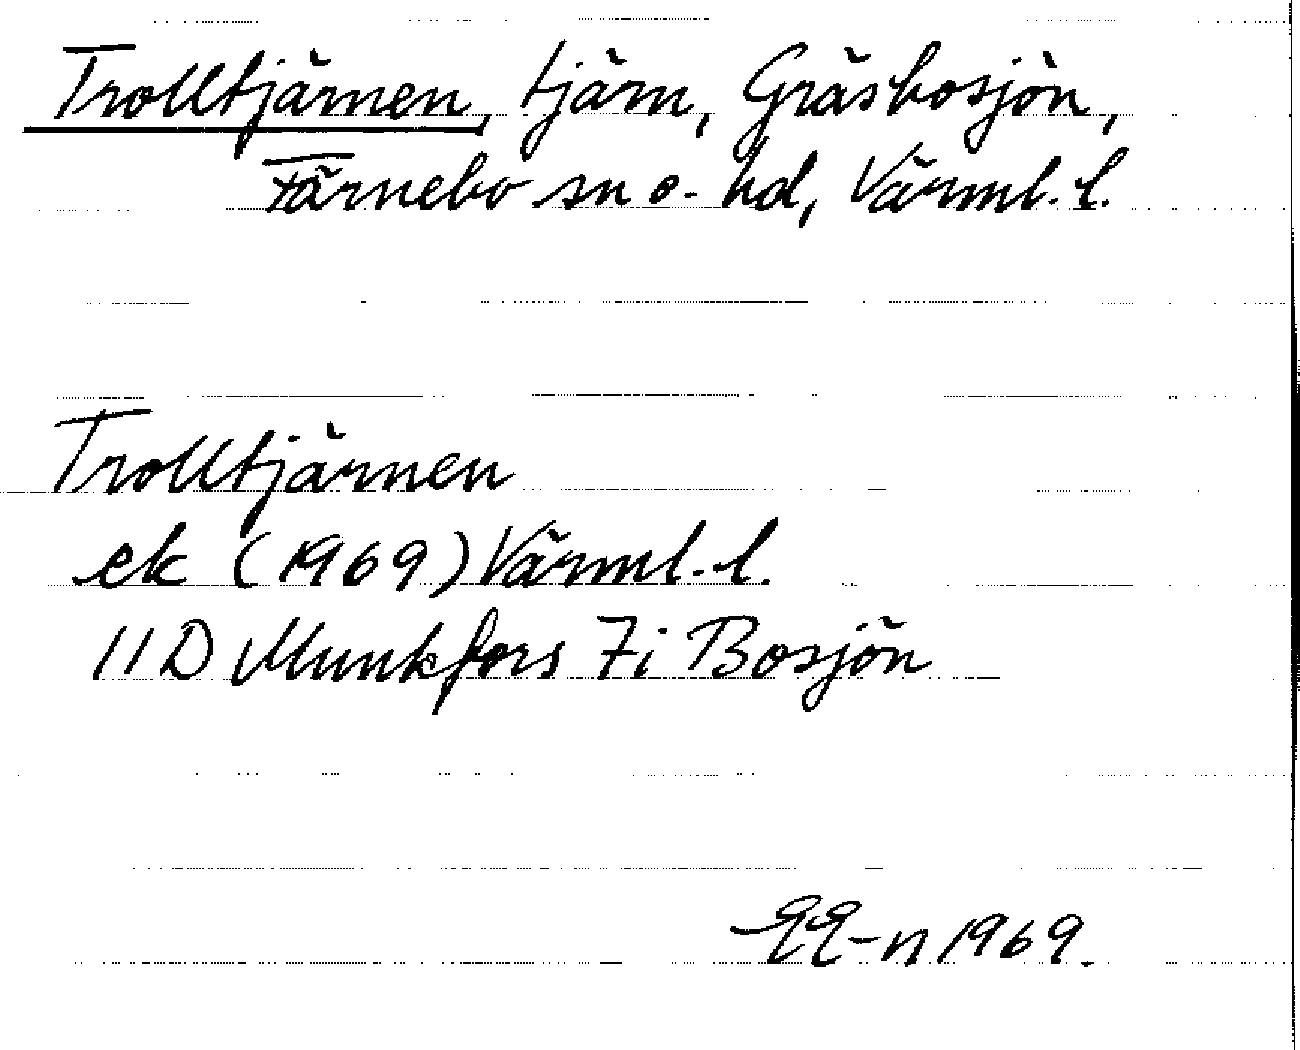 Trolltjärnen, tjärn, Gräsbosjön,
Färnebo sn o. hd, Värml. l.
Trolltjärnen
ek (1969) Värml. l.
11 D Munkfors 7i Bosjön
EE-n 1969.